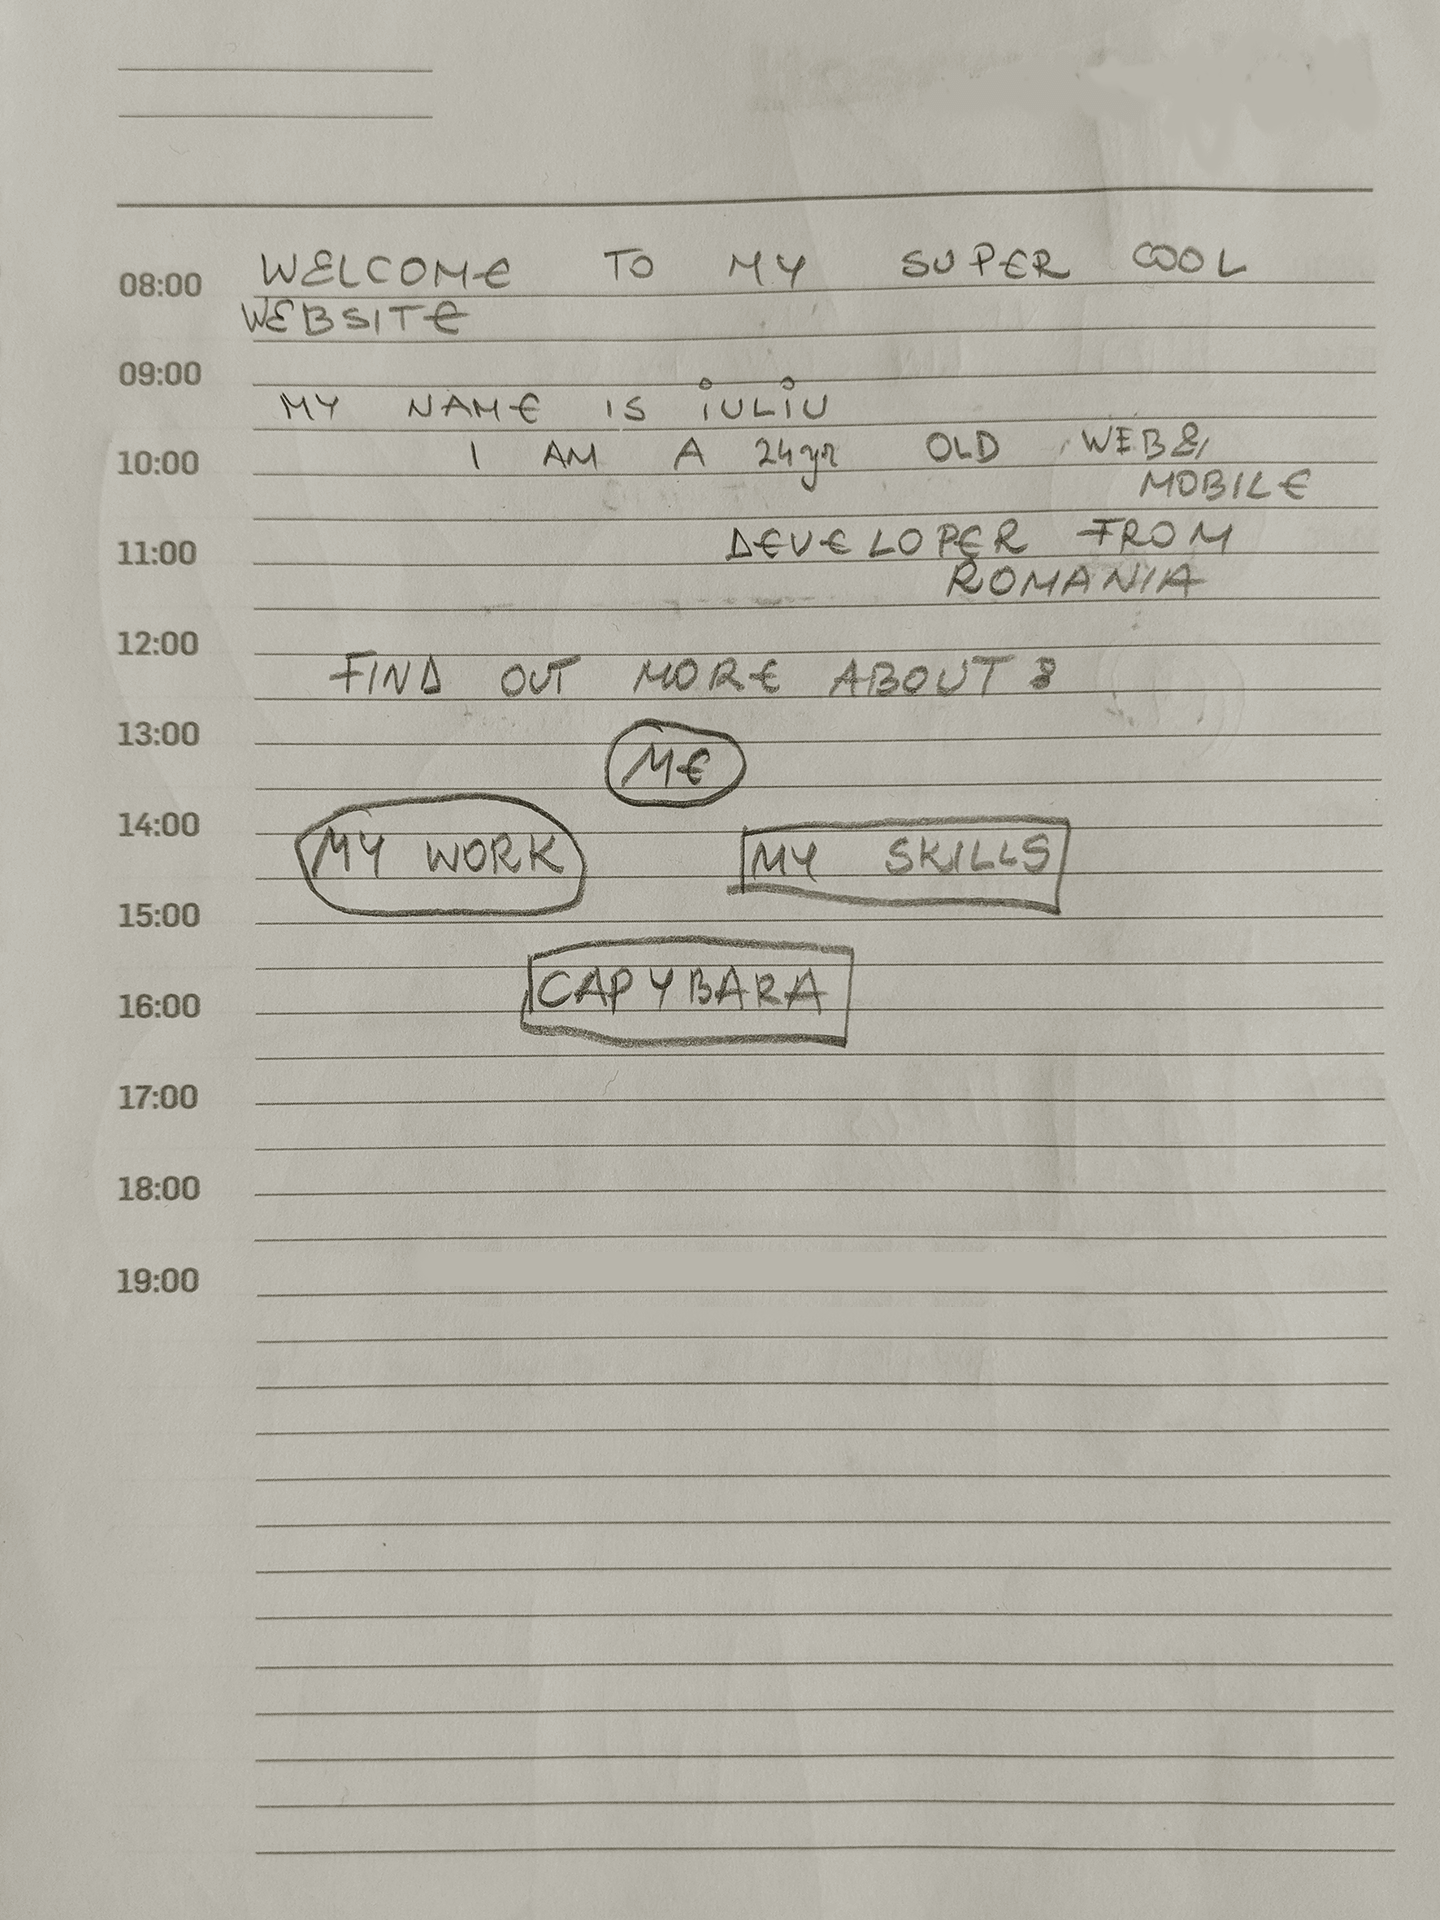 08:00 WELCOME TO MY SUPER COOL
WEBSITE
09:00
MY NAME IS iULiU
10:00 I AM A 24yr OLD WEB &
MOBILE
11:00 DEVELOPER FROM
ROMANIA
12:00
FIND OUT MORE ABOUT :
13:00
ME
14:00
MY WORK MY SKILLS
15:00
CAPYBARA
16:00
17:00
18:00
19:00